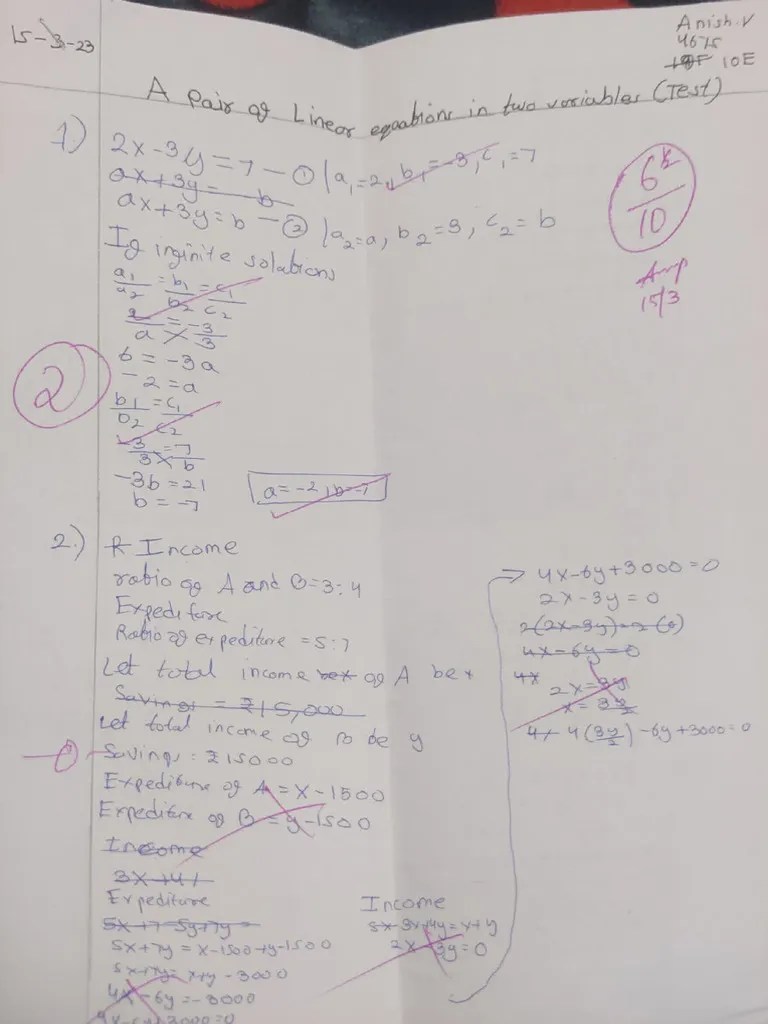 15-3-23
Anish.V
4675
10F 10E
A Pair of Linear equations in two variables (Test)
6½
10
15/3
1) 2x-3y=7 — ① | a₁=2, b₁=-3, c₁=7
ax+3y= b
ax+3y=b — ② | a₂=a, b₂=3, c₂=b
If infinite solutions
a₁/a₂ = b₁/b₂ = c₁/c₂
2/a = -3/3
6 = -3a
-2=a
2
b₁/b₂ = c₁/c₂
-3/3 = 7/b
-3b=21
b = -7
a=-2, b=-7
2.) R Income
ratio of A and B=3:4
Expediture
Ratio of expediture =5:7
Let total income bex of A be x
Savings = ₹15,000
Let total income of B be y
Savings: ₹15000
Expediture of A = x-1500
Expediture of B = y-1500
Income
3x+4y
Expediture
5x+7 5y+7y=
5x+7y = x-1500+y-1500
5x+7y= x+y-3000
4x-6y=-3000
4x-6y+3000=0
Income
5x 3x+4y=x+y
2x-3y=0
→ 4x-6y+3000=0
2x-3y=0
2(2x-3y)=2(0)
4x-6y=0
4x
2x=3y
x=3y/2
4x 4(3y/2)-6y+3000=0